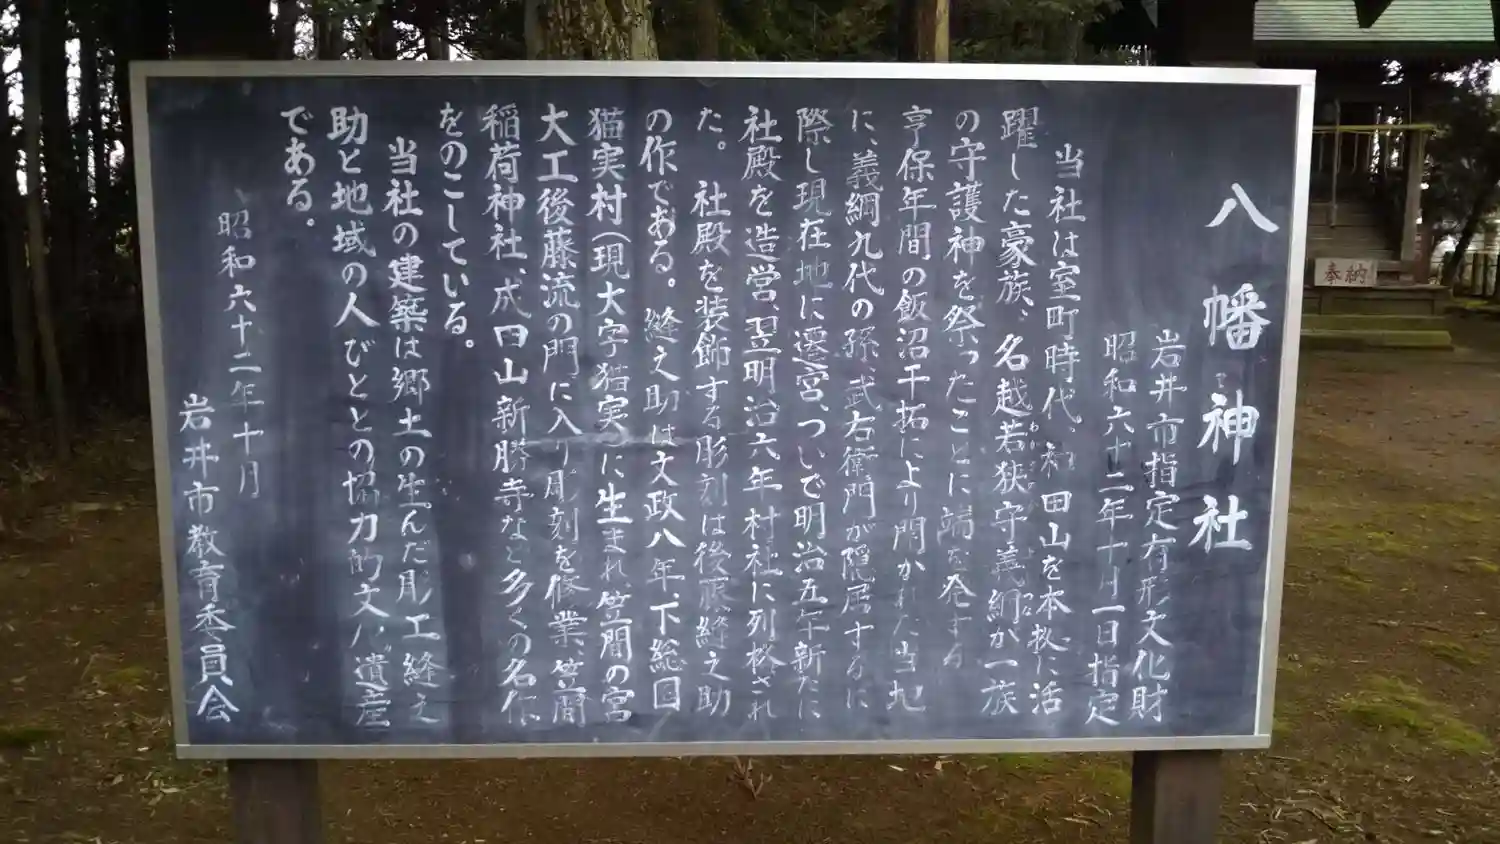 八幡神社
岩井市指定有形文化財
昭和六十二年十月一日指定
当社は室町時代、和田山を本拠に活
躍した豪族、名越若狭守義綱が一族
の守護神を祭ったことに端を発する
亨保年間の飯沼干拓により開かれた当地
に、義綱九代の孫、武右衛門が隠居するに
際し現在地に遷宮、ついで明治五年新たに
社殿を造営、翌明治六年村社に列格され
た。社殿を装飾する彫刻は後藤縫之助
の作である。縫之助は文政八年、下総国
猫実村(現大字猫実)に生まれ、笠間の宮
大工後藤流の門に入り彫刻を修業、笠間
稲荷神社、成田山新勝寺など多くの名作
をのこしている。
当社の建築は郷土の生んだ彫工縫之
助と地域の人びととの協力的文化遺産
である。
昭和六十二年十月
岩井市教育委員会
奉納